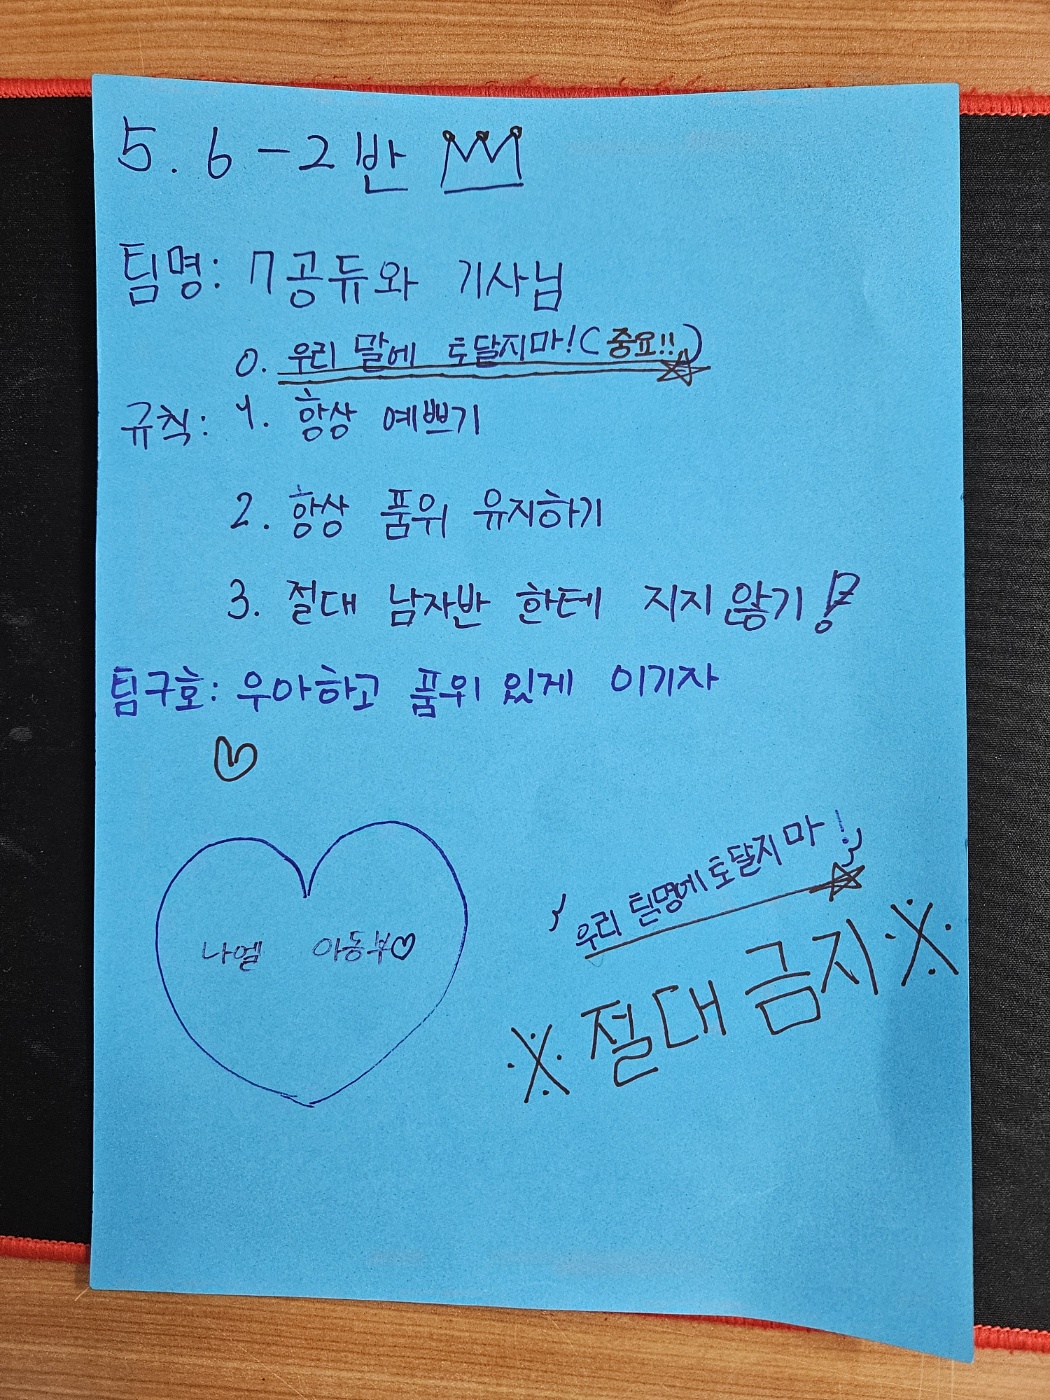 5.6-2반
팀명: 7공듀와 기사님
0. 우리 말에 토달지마!(중요!!)
규칙: 1. 항상 예쁘기
2. 항상 품위 유지하기
3. 절대 남자반 한테 지지 않기!
팀구호: 우아하고 품위 있게 이기자
나엘 아동부♡
우리 팀명에 토달지마!
※절대 금지※